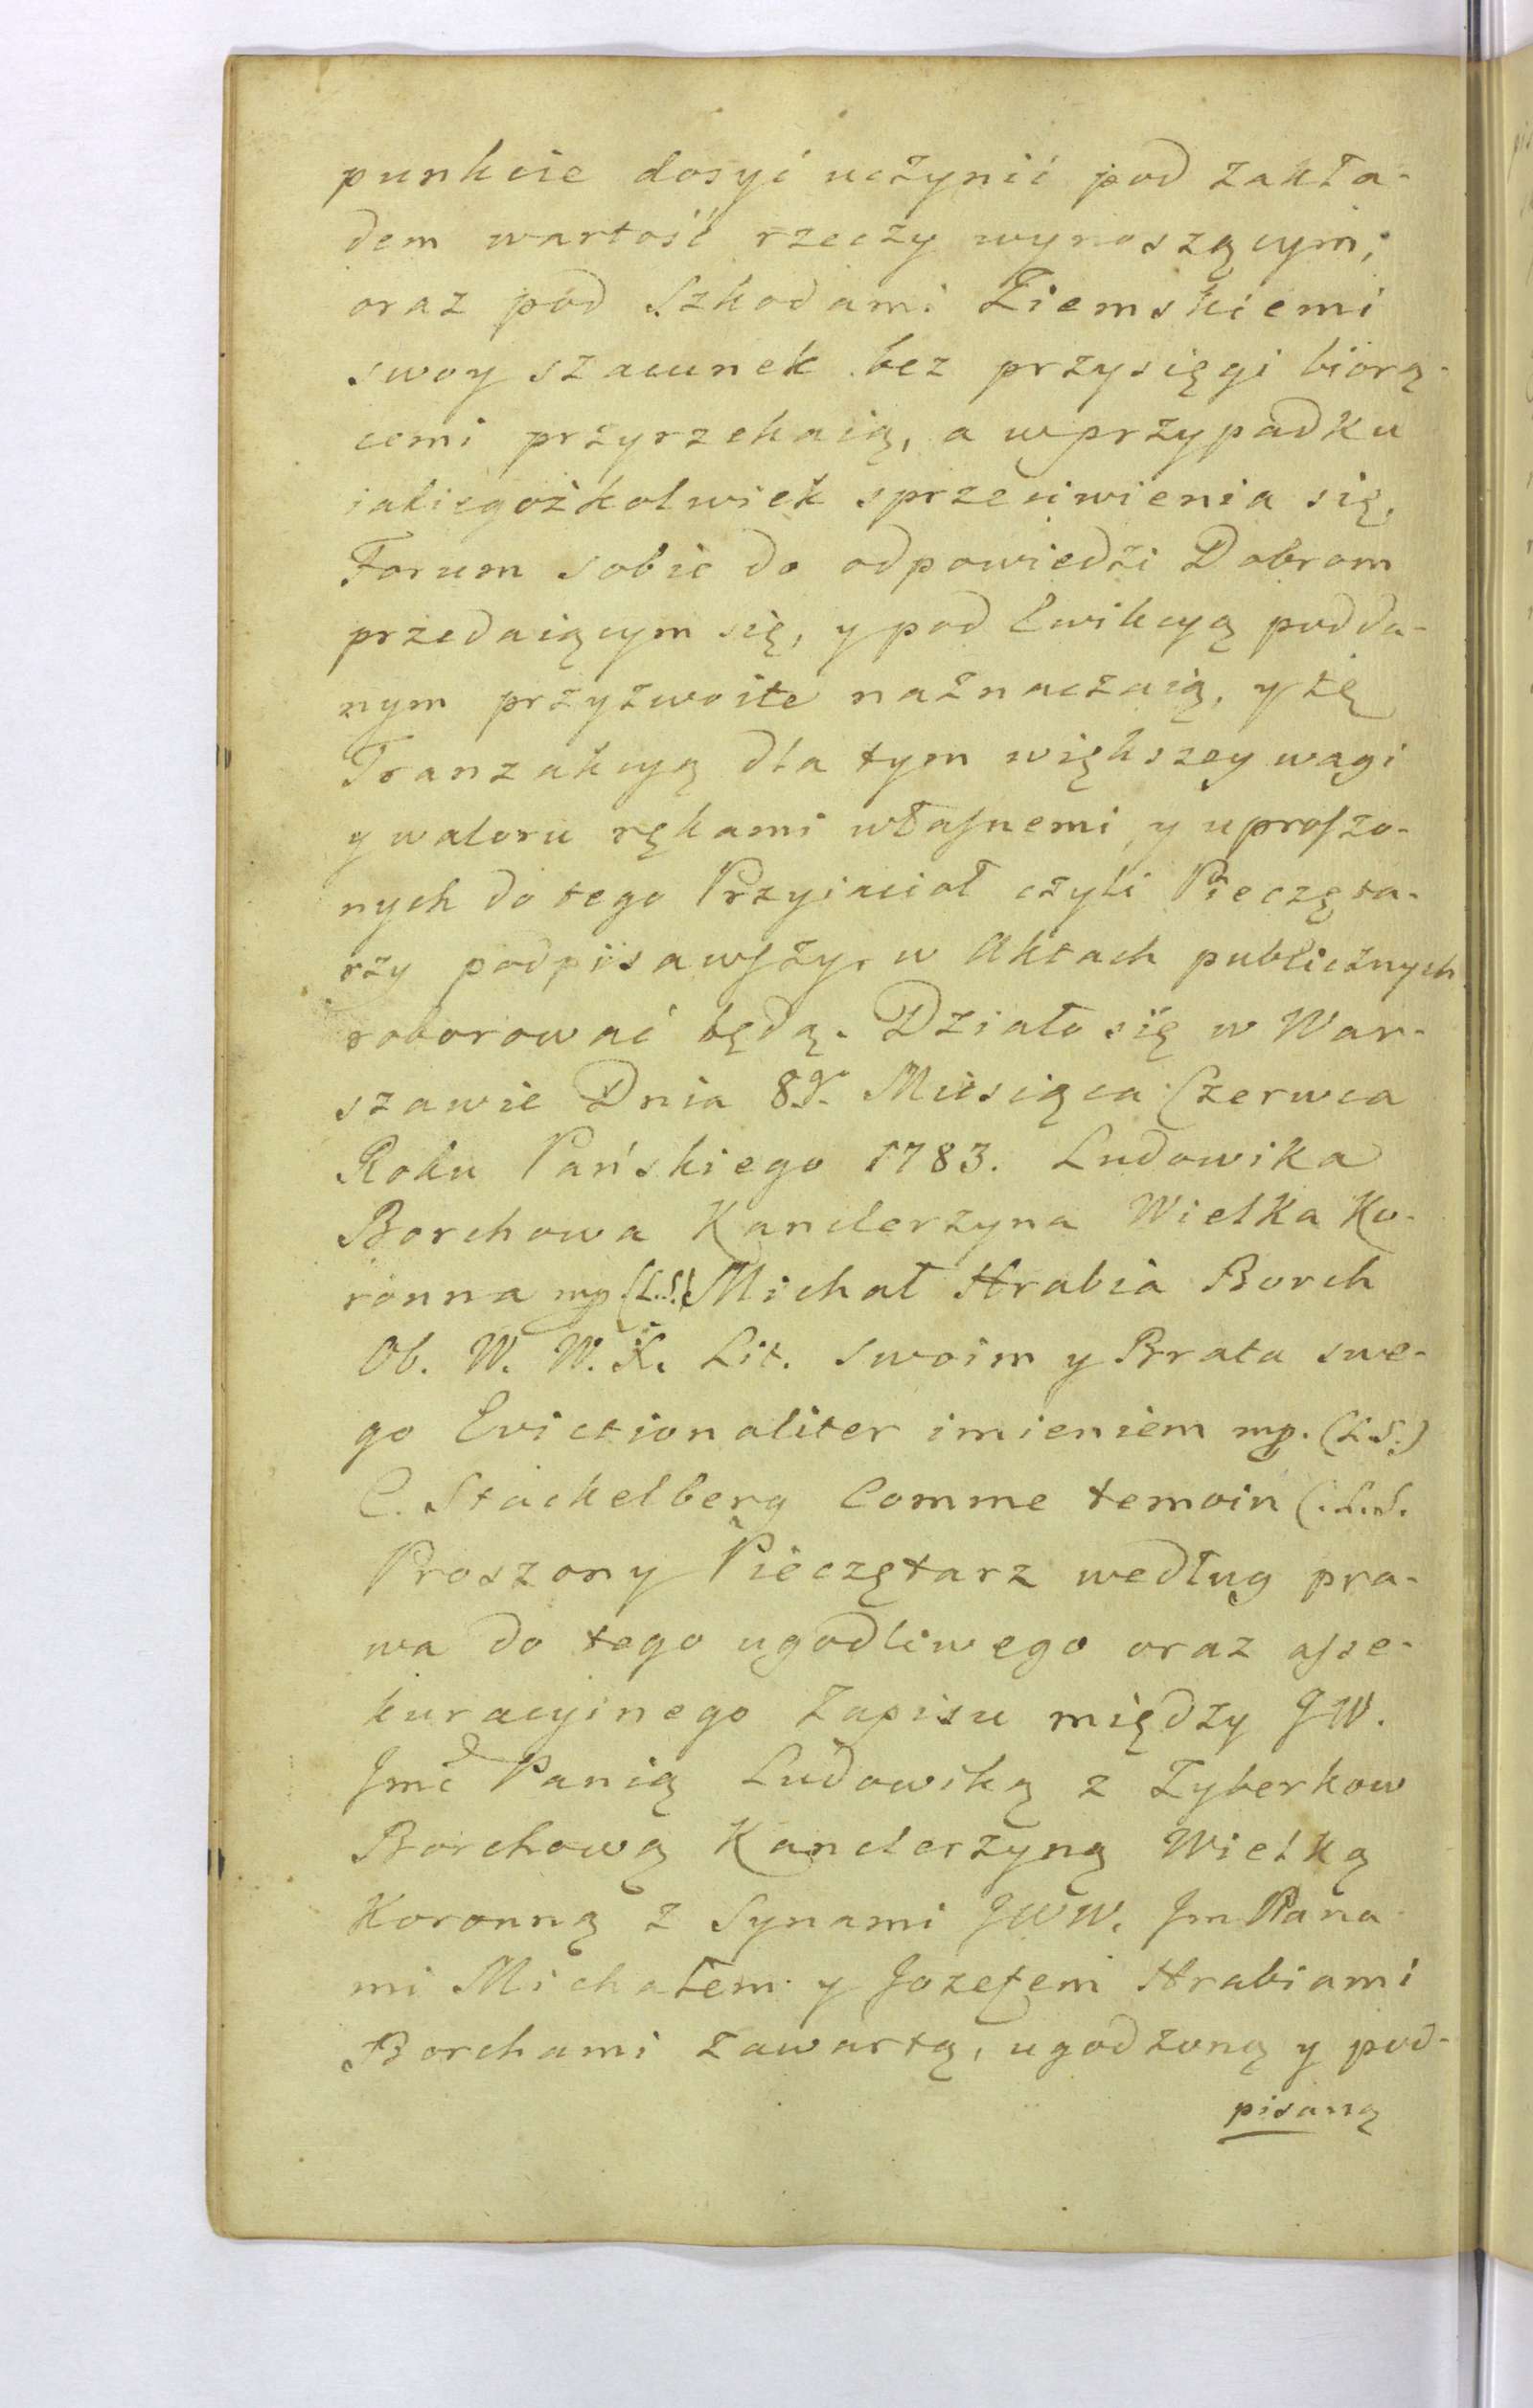 punkcie dosyć uczynić pod zakła-
dem wartość rzeczy wynoszącym,
oraz pod Szkodami Ziemskiemi
swoy szacunek bez przysięgi biorą-
cemi przyrzekaią, a wprzypadku
iakiegożkolwiek sprzeciwienia się,
Forum sobie do odpowiedzi Dobrom
przedaiącym się, y pod Ewikcyą podda-
nym przyzwoite naznaczaią, y tę
Tranzakcyą dla tym większey wagi
y waloru rękami własnemi y uproszo-
nych do tego Przyiacioł czyli Pieczęta-
rzy podpisawszy, w Aktach publicznych
roborować będą. Działo się w War-
szawie Dnia 8g. Miesiąca Czerwca
Roku Pańskiego 1783. Ludowika
Borchowa Kanclerzyna Wielka Ko-
ronna mp (L.S.) Michał Hrabia Borch
Ob. W. W. X. Lit. swoim y Brata swe-
go Evictionaliter imieniem mp. (L.S.)
C. Stackelberg Comme temoin (.L.S.
Proszony Pieczętarz według pra-
wa do tego ugodliwego oraz asse-
kuracyinego Zapisu między JW.
Jmć Panią Ludowiką z Zyberkow
Borchową Kanclerzyną Wielką
Koronną z Synami JWW. Jm Pana
mi Michałem y Jozefem Hrabiami
Borchami zawartą, ugodzoną y pod-
pisaną